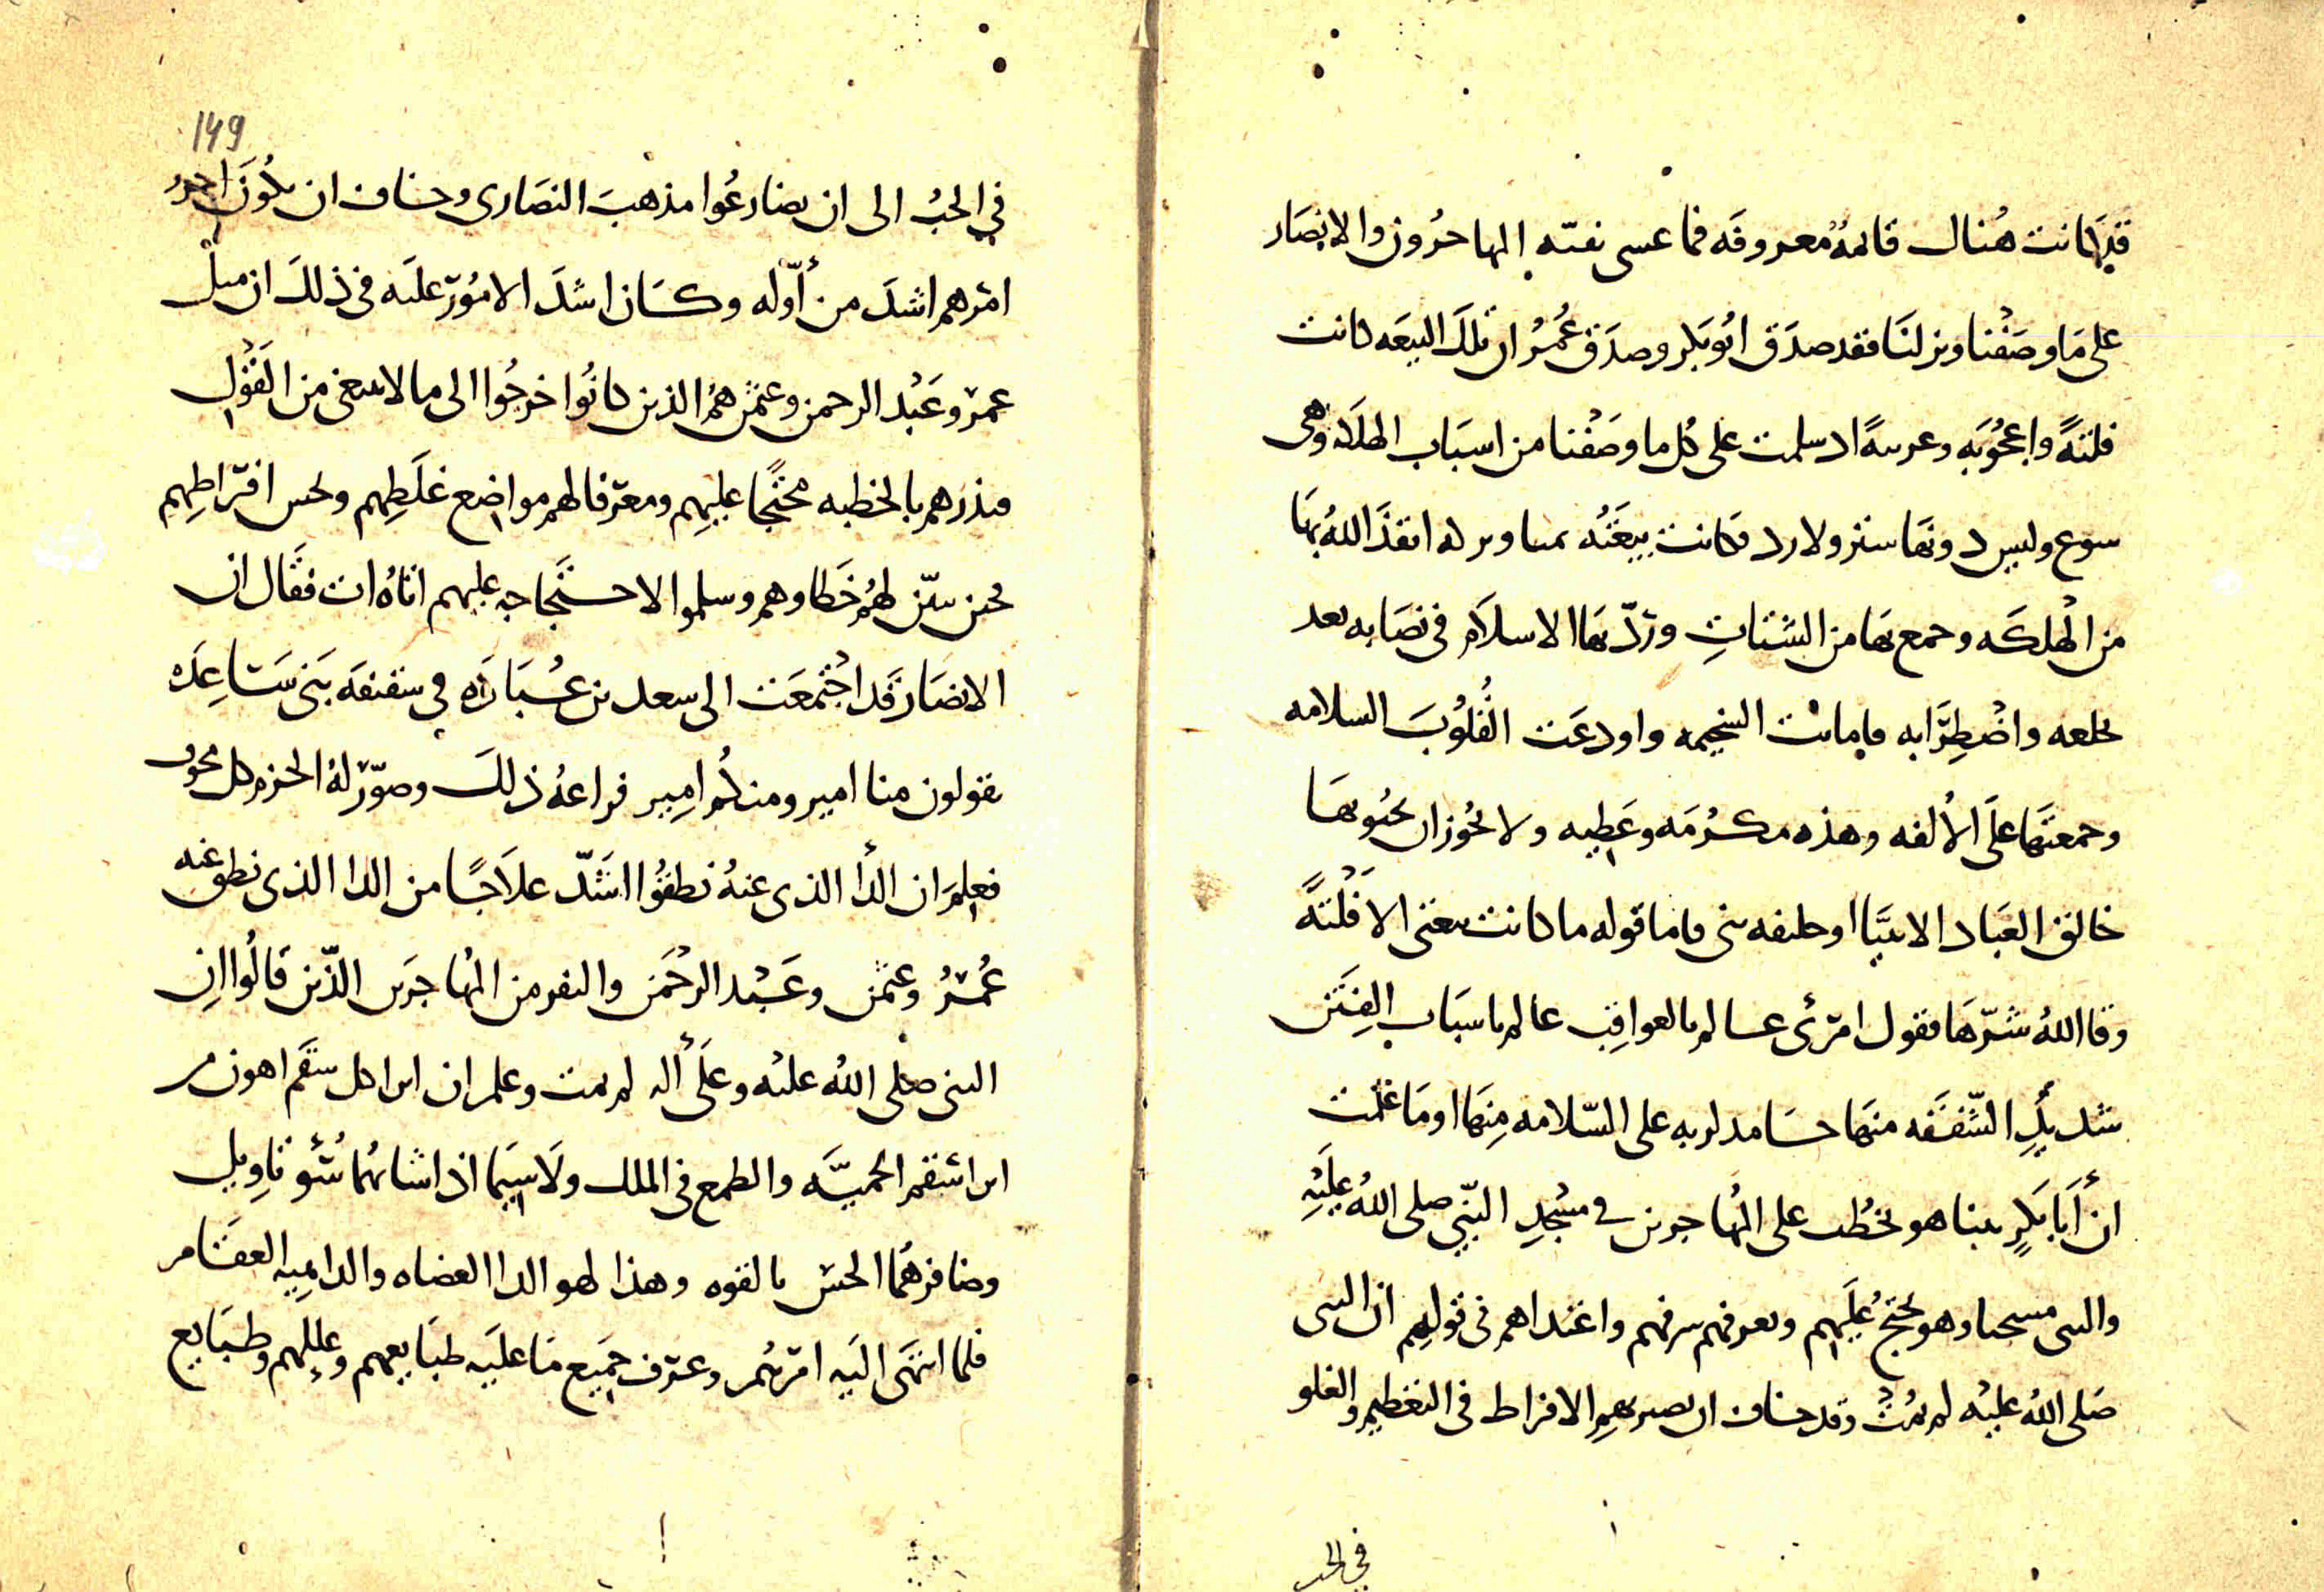 قد كانت هناك قائمة معروفه فما عسى نفته المهاجرون والانصار
على ما وصفنا ونزلنا فقد صدق ابو بكر وصدق عمر ان تلك البيعه كانت
فلتةً واعجوبه وغريبةً اذ سلمت على كل ما وصفنا من اسباب الهلكه وهى
سوع وليس دونها ستر ولا رد فكانت بيعته يمنا وبركه انقذ الله بها
من الهلكه وجمع بها من الشتاتِ وردّ بها الاسلام فى نصابه بعد
تخلعه واضطرابه فاماتت السخيمه واودعت القلوبَ السلامه
وجمعتها على الألفه وهذه مكرمه وعطيه ولا يجوز ان يحبو بها
خالق العباد الا نبيّا او خليفه نبى فاما قوله ما كانت بيعتى الا فلتةً
وقا الله شرّها فقول امرئ عالم بالعواقب عالم باسباب الفِتن
شديدِ الشفقه منها حامد لربه على السّلامه منها او ما علمت
ان أبا بكرٍ بينا هو يخطب على المهاجرين في مسجدِ النبّي صلى الله عليْهِ
والنبى مسجّا وهو يحتج عليهم ويعرفهم سرفهم واعتداهم فى قولهم ان النبى
صلى الله عليْه لم يمُتْ وقد خاف ان يصير بهم الافراط فى التعظيم والغلو
في الحب
149
في الحبُ الى ان يضارعُوا مذهبَ النصَارى وخاف ان يكونَ اخر
امرهم اشدَ من أوّله وكان اشدَ الامُور عليه فى ذلكَ ان مثل
عمر وعَبْد الرحمن وعثمن همُ الذين كانُوا خرجُوا الى ما لا ينبغى من القوْلِ
فبدرهم بالخطبه محتجًا عليهم ومعرفا لهم مواضع غلَطِهم وفحش افراطِهم
فحين تبيّن لهُم خَطاوهم وسلموا لاحتجاجه عليهم اتاهُ ات فقَال ان
الانصار قَد اجْتمعَت الى سعد بن عُبَادَه في سقيفه بَنى سَاعِدَه
يقولون منا امير ومنكُم امِير فراعهُ ذلكَ وصوّر لهُ الحزم كل مخوف
فعلِمَ ان الدأ الذى عنهُ نطقُوا اشَدّ علاَجًا من الدا الذى نطق عنه
عُمَرُ وعثمن وعَبْد الرحْمَن والنفر من المُهاجرَين الذّين قالُوا ان
النبى صلى الله عليْه وعلَى أله لم يمت وعلم ان ابرا كل سقَم اهون من
ابرا سقم الحميَّه والطمع فى الملك ولَا سيَما اذا شابهُما سُوُ تاويل
وضافرهُما الحس بالقوه وهذا لهو الدا العضاه والداهِيه العقَام
فلما انتهَى اليَه امرهُم وعرف جَميع مَا عليَه طبَايعهم وعللهم وطبَايع